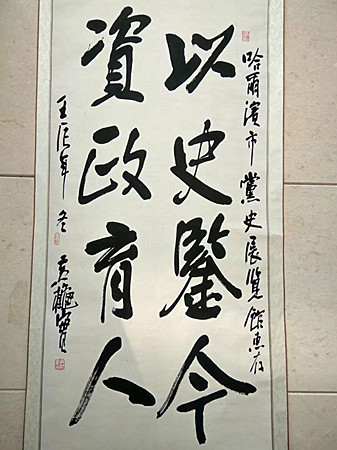 哈爾濱市黨史展覽館惠存
以史鑒今
資政育人
壬辰年冬